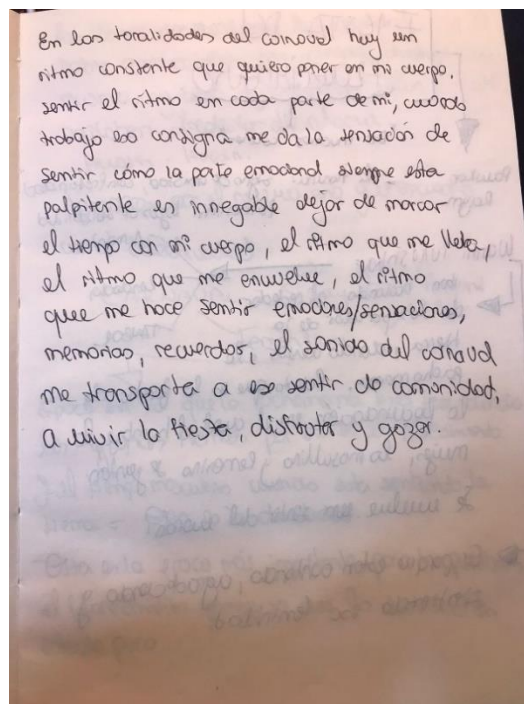 En las tonalidades del carnaval hay un
ritmo constante que quiero poner en mi cuerpo.
sentir el ritmo en cada parte de mi, cuando
trabajo eso consigna me da la sensación de
sentir cómo la parte emocional siempre esta
palpitente es innegable dejar de marcar
el tiempo con mi cuerpo, el ritmo que me lleba,
el ritmo que me envuelve, el ritmo
que me hace sentir emociones/sensaciones,
memorias, recuerdos, el sonido del carnaval
me transporta a ese sentir de comunidad,
a vivir la fiesta, disfrutar y gozar.